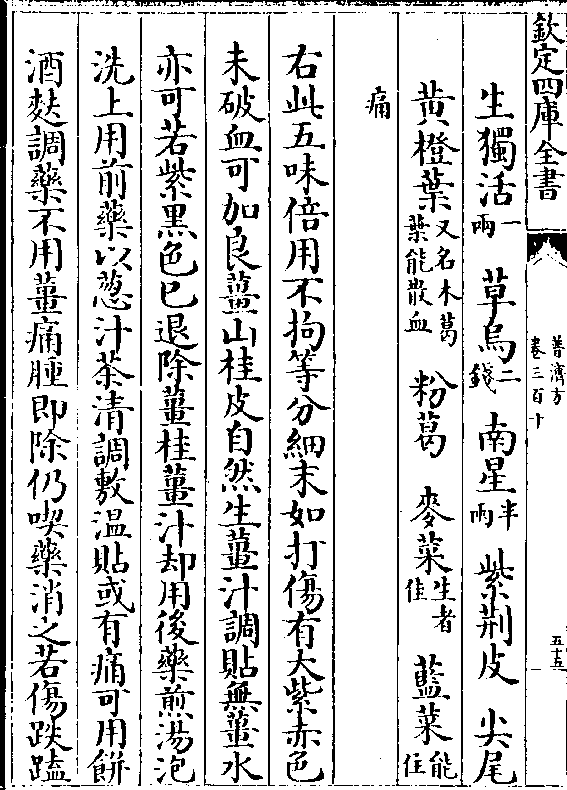 欽定四庫全書
普濟方
卷三百十
五十五
生獨活一兩 草烏二錢 南星半兩 紫荆皮 尖尾
黃橙葉又名木葛葉能散血 粉葛 麥菜生者佳 藍菜能住
痛
右此五味倍用不拘等分細末如打傷有大紫赤色
未破血可加良薑山桂皮自然生薑汁調貼無薑水
亦可若紫黑色已退除薑桂薑汁却用後藥煎湯泡
洗上用前藥以葱汁茶清調敷温貼或有痛可用餅
酒麩調藥不用薑痛腫即除仍喫藥消之若傷跌䃮